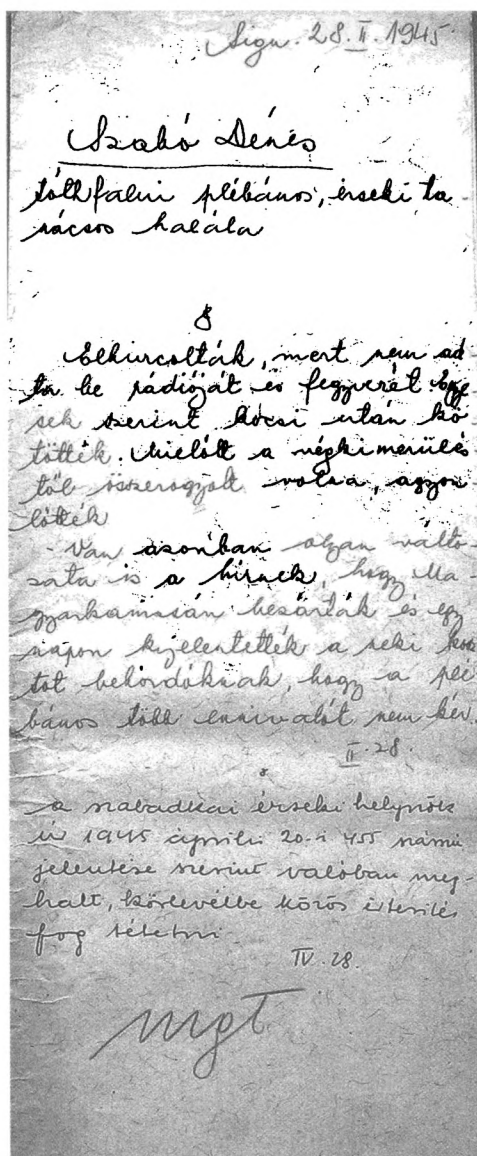 Sign. 28. II. 1945
Szabó Dénes
tóthfalui plébános, érseki ta-
nácsos halála
Elhurcolták, mert nem ad-
ta be rádióját és fegyverét. Egye-
sek szerint kocsi után kö-
tötték. Mielőtt a végkimerülés-
től összerogyott volna, agyon-
lőtték
- Van azonban olyan válto-
zata is a hírnek, hogy Ma-
gyarkanizsán bezárták és egy
napon kijelentették a neki kosz-
tot behordóknak, hogy a plé-
bános több ennivalót nem kér.
II. 28.
A szabadkai érseki helynök
úr 1945 április 20-i 455 számú
jelentése szerint valóban meg-
halt, körlevélbe közös értesítés
fog tétetni.
IV. 28.